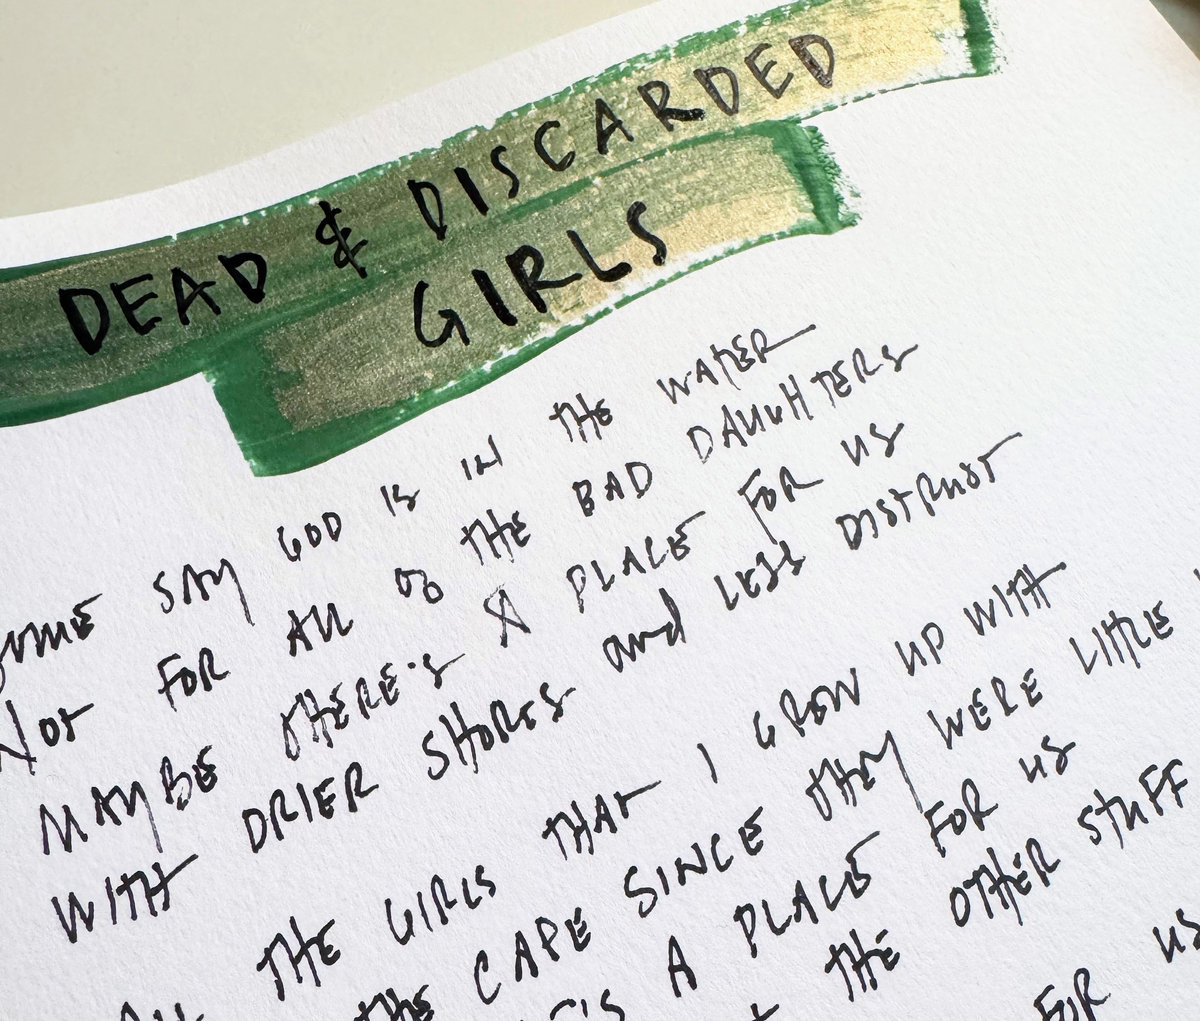 DEAD & DISCARDED
GIRLS
SOME SAY GOD IS IN THE WATER
NOT FOR ALL OF THE BAD DAUGHTERS
MAYBE THERE'S A PLACE FOR US
WITH DRIER SHORES and LESS DISTRUST
ALL THE GIRLS THAT I GREW UP WITH
THE CAPE SINCE THEY WERE LITTLE
A PLACE FOR US
THE OTHER STUFF
FOR US